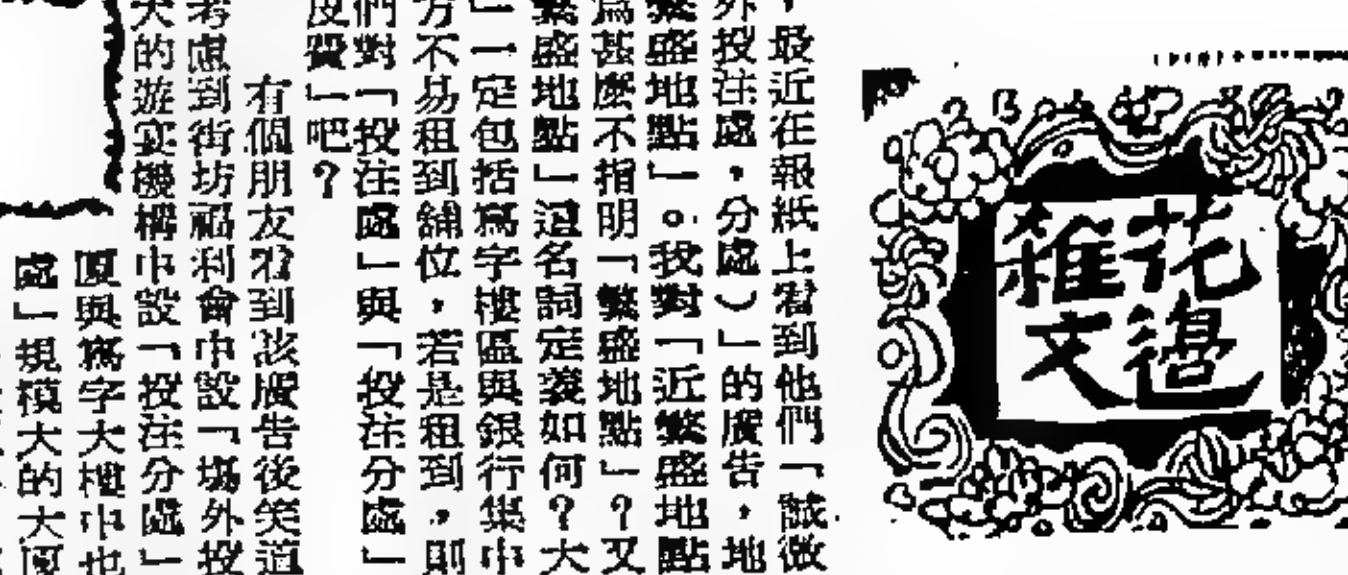 花邊
雜文
，最近在報紙上看到他們「誠徵
外投注處，分處）」的廣告，地
繁盛地點」。我對「近繁盛地點
爲甚麼不指明「繁盛地點」？又
繁盛地點」這名詞定義如何？大
」一定包括寫字樓區與銀行集中
方不易租到舖位，若是租到，則
們對「投注處」與「投注分處」
度費」吧？
有個朋友看到該廣告後笑道
考慮到街坊福利會中設「場外投
大的遊宴機構中設「投注分處」
厦與寫字大樓中也
處」規模大的大厦